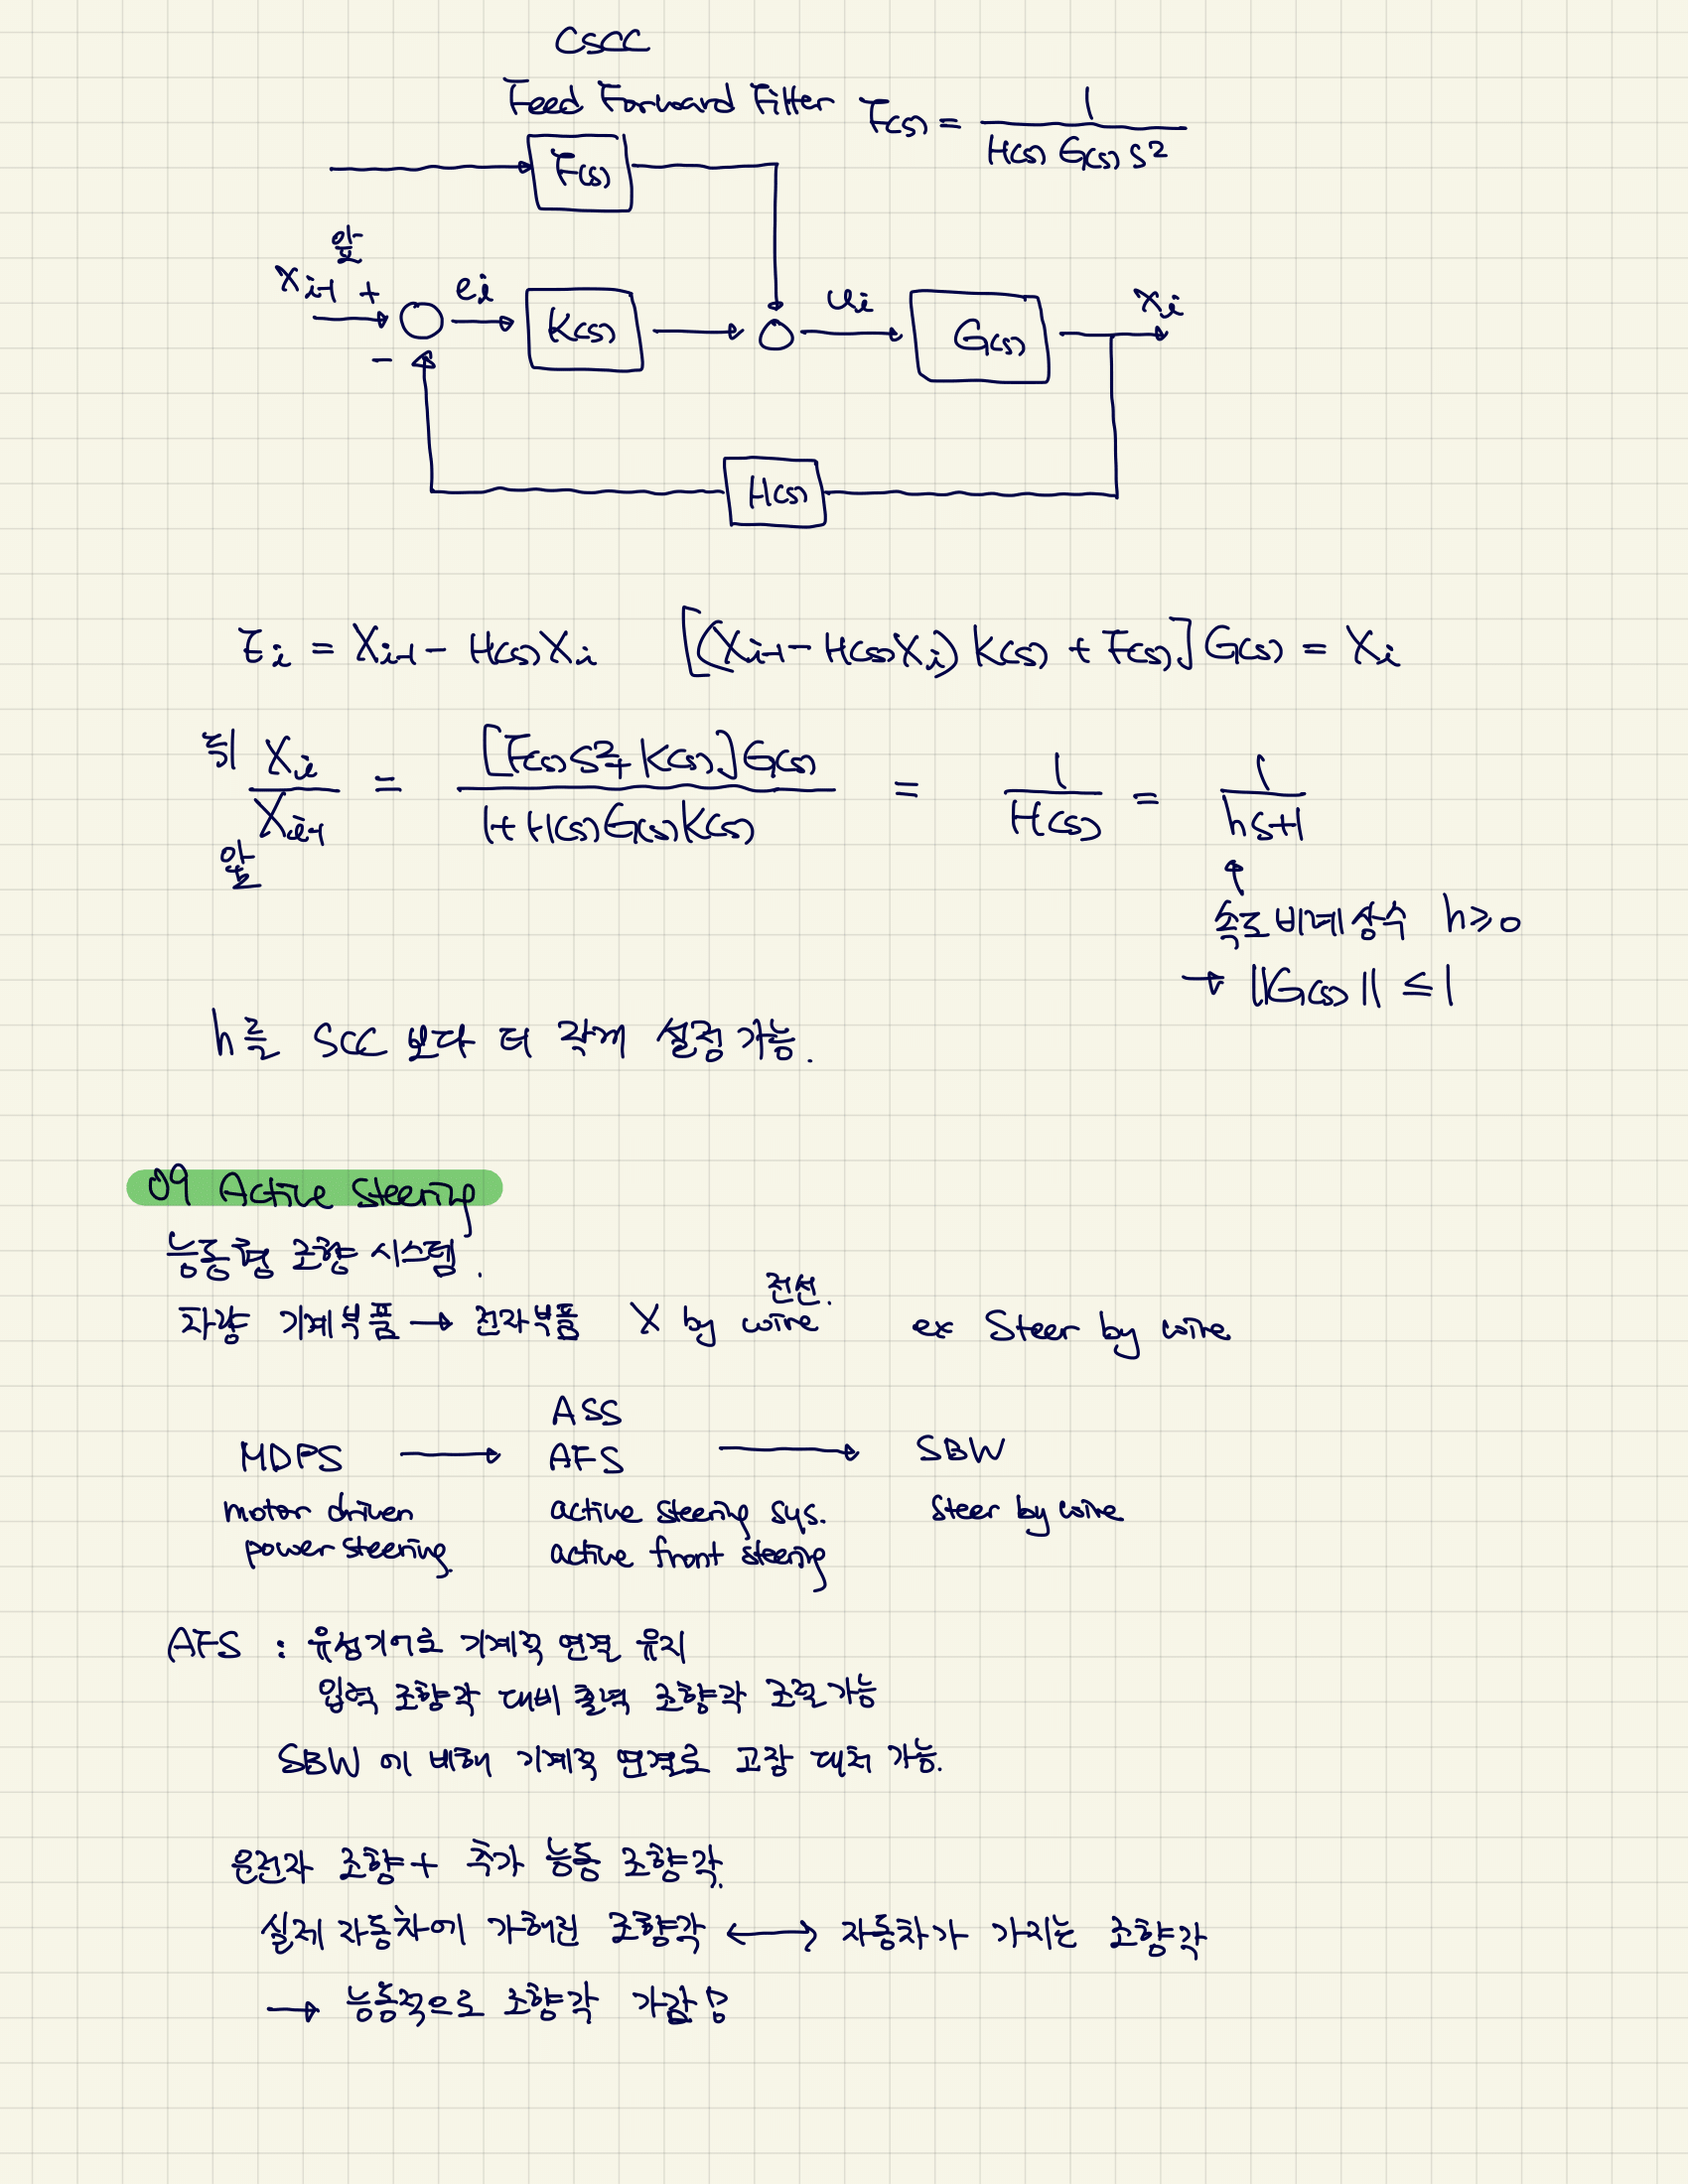 CSCC
Feed Forward Filter F(s) = 1 / H(s) G(s) s²
F(s)
앞
x_{i-1} + e_i K(s) u_i G(s) x_i
-
H(s)
E_i = X_{i-1} - H(s)X_i [(X_{i-1} - H(s)X_i) K(s) + F(s)] G(s) = X_i
뒤 X_i / X_{i-1} = [F(s)s² + K(s)]G(s) / 1 + H(s)G(s)K(s) = 1 / H(s) = 1 / hs+1
앞
↑
속도 비례 상수 h ≥ 0
→ ||G(s)|| ≤ 1
h를 SCC 보다 더 작게 설정 가능.
09 Active Steering
능동형 조향 시스템.
전선.
차량 기계부품 → 전자부품 X by wire ex Steer by wire
ASS
MDPS → AFS → SBW
motor driven active steering sys. Steer by wire
power steering. active front steering
AFS : 유성기어로 기계적 연결 유지
입력 조향각 대비 출력 조향각 조절 가능
SBW 에 비해 기계적 연결로 고장 대처 가능.
운전자 조향 + 추가 능동 조향각.
실제 자동차에 가해진 조향각 ↔ 자동차가 가지는 조향각
→ 능동적으로 조향각 가감!